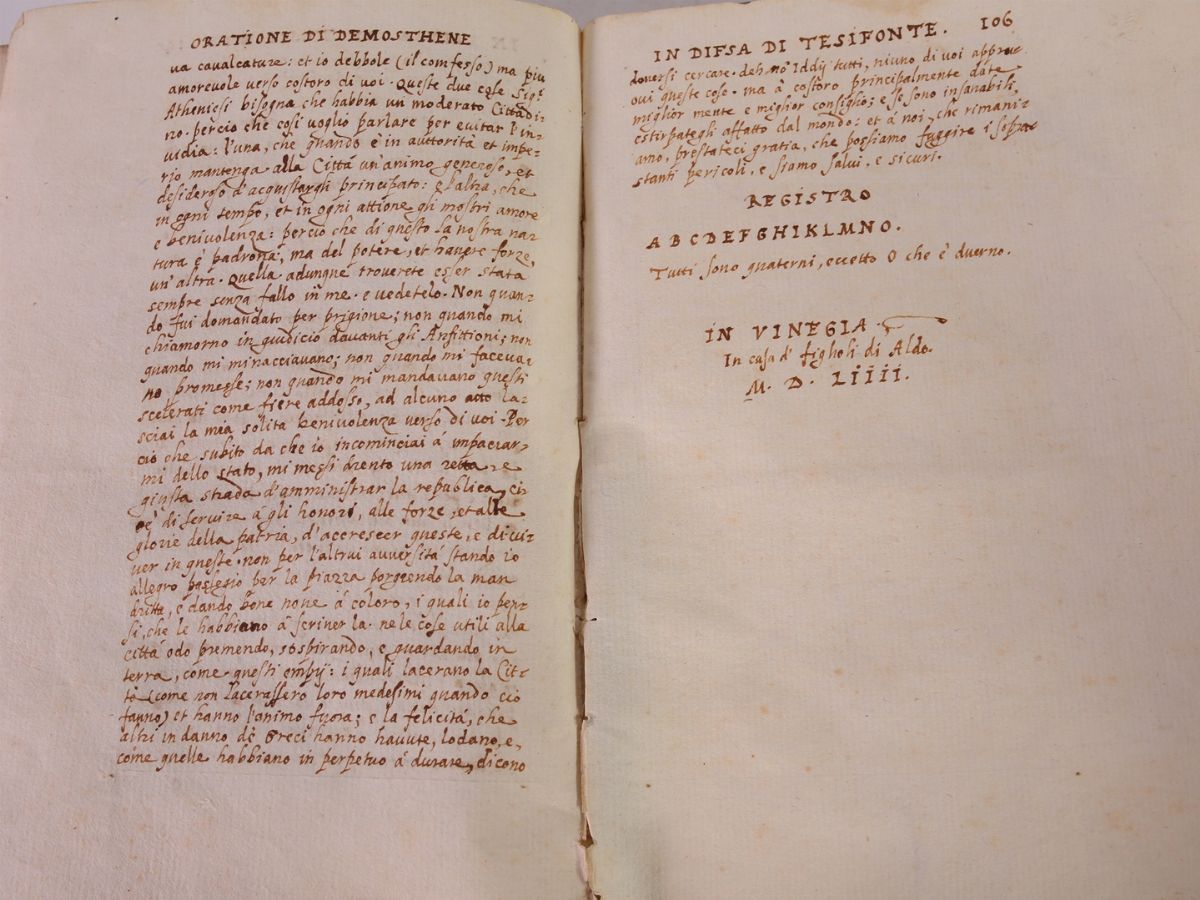 ORATIONE DI DEMOSTHENE
va cavalcature: et io debbole (il comfesso) ma piu
amorevole verso costoro di voi. Queste due cose Sig.ri
Atheniesi bisogna che habbia un' moderato Cittadi-
no. percio che cosi voglio parlare per evitar l'in-
vidia: l'una, che quando è in auttorità et impe-
rio mantenga alla Cittá un'animo generoso, et
desideroso d'acquistargli principato: e l'altra, che
in ogni tempo, et in ogni attione gli mostri amore
e benivolenza: percio che di questo la nostra na-
tura è padrona, ma del potere, et havere forze,
un'altra. Quella adunque troverete esser stata
sempre senza fallo in me. e vedetelo. Non quan-
do fui domandato per prigione; non quando mi
chiamorno in giudicio davanti gli Anfittioni; non
quando mi minacciavano; non quando mi faceva-
no promesse; non quando mi mandavano questi
scelerati come fiere addosso, ad alcuno atto la-
sciai la mia solita benivolenza verso di voi. Per
ciò che subito da che io incominciai á impacciar-
mi dello stato, mi messi drento una retta, e
giusta strada d'amministrar la republica, ci-
oè di servire á gli honori, alle forze, et alle
glorie della patria, d'accrescer queste, e di vi-
ver in queste. non per l'altrui avversitá stando io
allegro passegio per la piazza porgendo la man
dritta, e dando bone nove á coloro, i quali io pen-
si, che le habbiano á scriver la. ne le cose utili alla
cittá odo premendo, sospirando, e guardando in
terra, come questi empij: i quali lacerano la Cit-
tá (come non lacerassero loro medesimi quando ciò
fanno) et hanno l'animo fuora; e la felicitá, che
altri in danno de Greci hanno havute, lodano, e,
cóme quelle habbiano in perpetuo á durare, dicono
IN DIFSA DI TESIFONTE. 106
doversi cercare. deh nò Iddij tutti, niuno di voi approve
ovi queste cose. ma à costoro principalmente date
miglior mente e miglior consiglio; e se sono insanabili
estirpategli affatto dal mondo: et à noi, che rimani-
amo, prestateci gratia, che possiamo fuggire i sopra-
stanti pericoli, e siamo salvi, e sicuri.
REGISTRO
A B C D E F G H I K L M N O.
Tutti sono quaterni, eccetto O che è duerno.
IN VINEGIA.
In casa d' figlioli di Aldo.
M. D. LIIII.